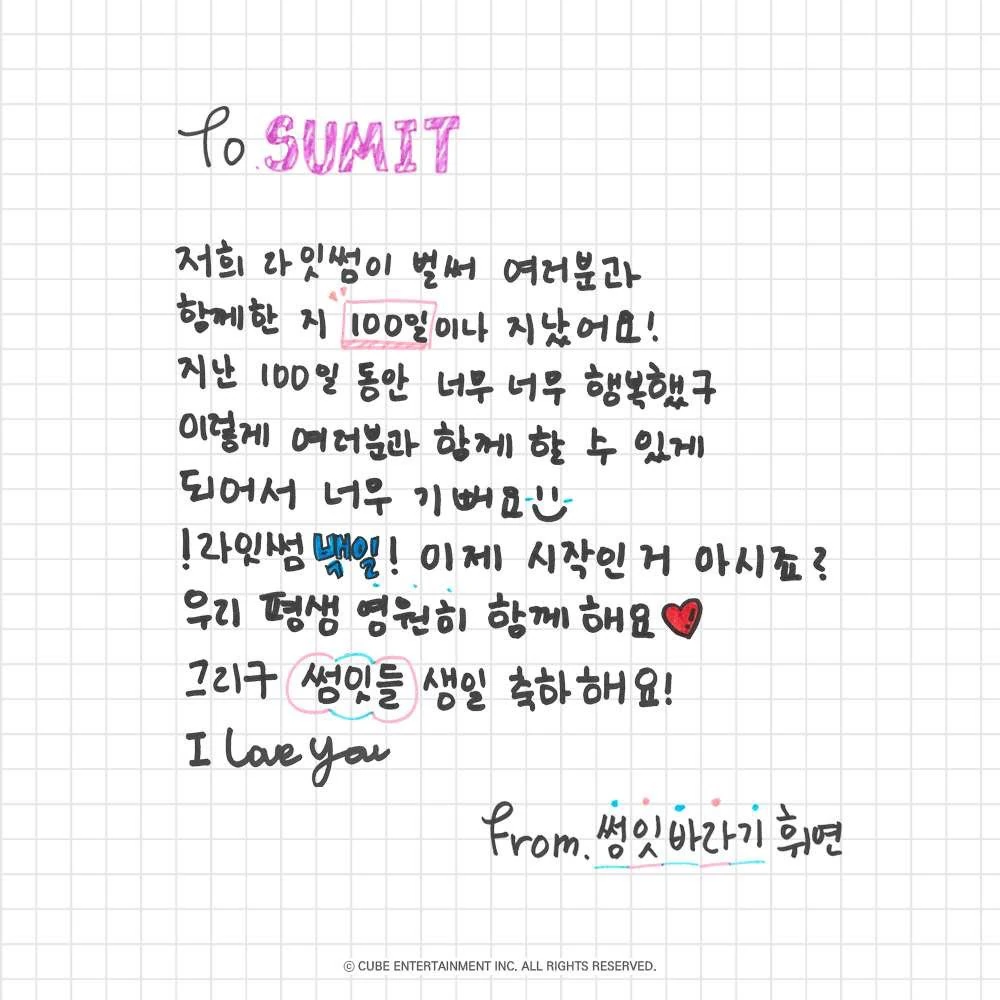 To. SUMIT
저희 라잇썸이 벌써 여러분과
함께한 지 100일이나 지났어요!
지난 100일 동안 너무 너무 행복했구
이렇게 여러분과 함께 할 수 있게
되어서 너무 기뻐요
!라잇썸 백일! 이제 시작인 거 아시죠?
우리 평생 영원히 함께해요
그리구 썸잇들 생일 축하해요!
I love you
From. 썸잇바라기 휘연
© CUBE ENTERTAINMENT INC. ALL RIGHTS RESERVED.